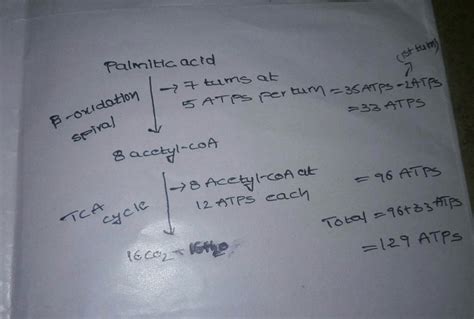 (1st turn)
Palmitic acid
→ 7 turns at
5 ATPs per turn = 35 ATPs - 2 ATPs
= 33 ATPs
β-oxidation
spiral
8 acetyl-coA
→ 8 Acetyl-coA at
12 ATPs each = 96 ATPs
TCA
cycle
Total = 96+33 ATPs
= 129 ATPs
16CO2